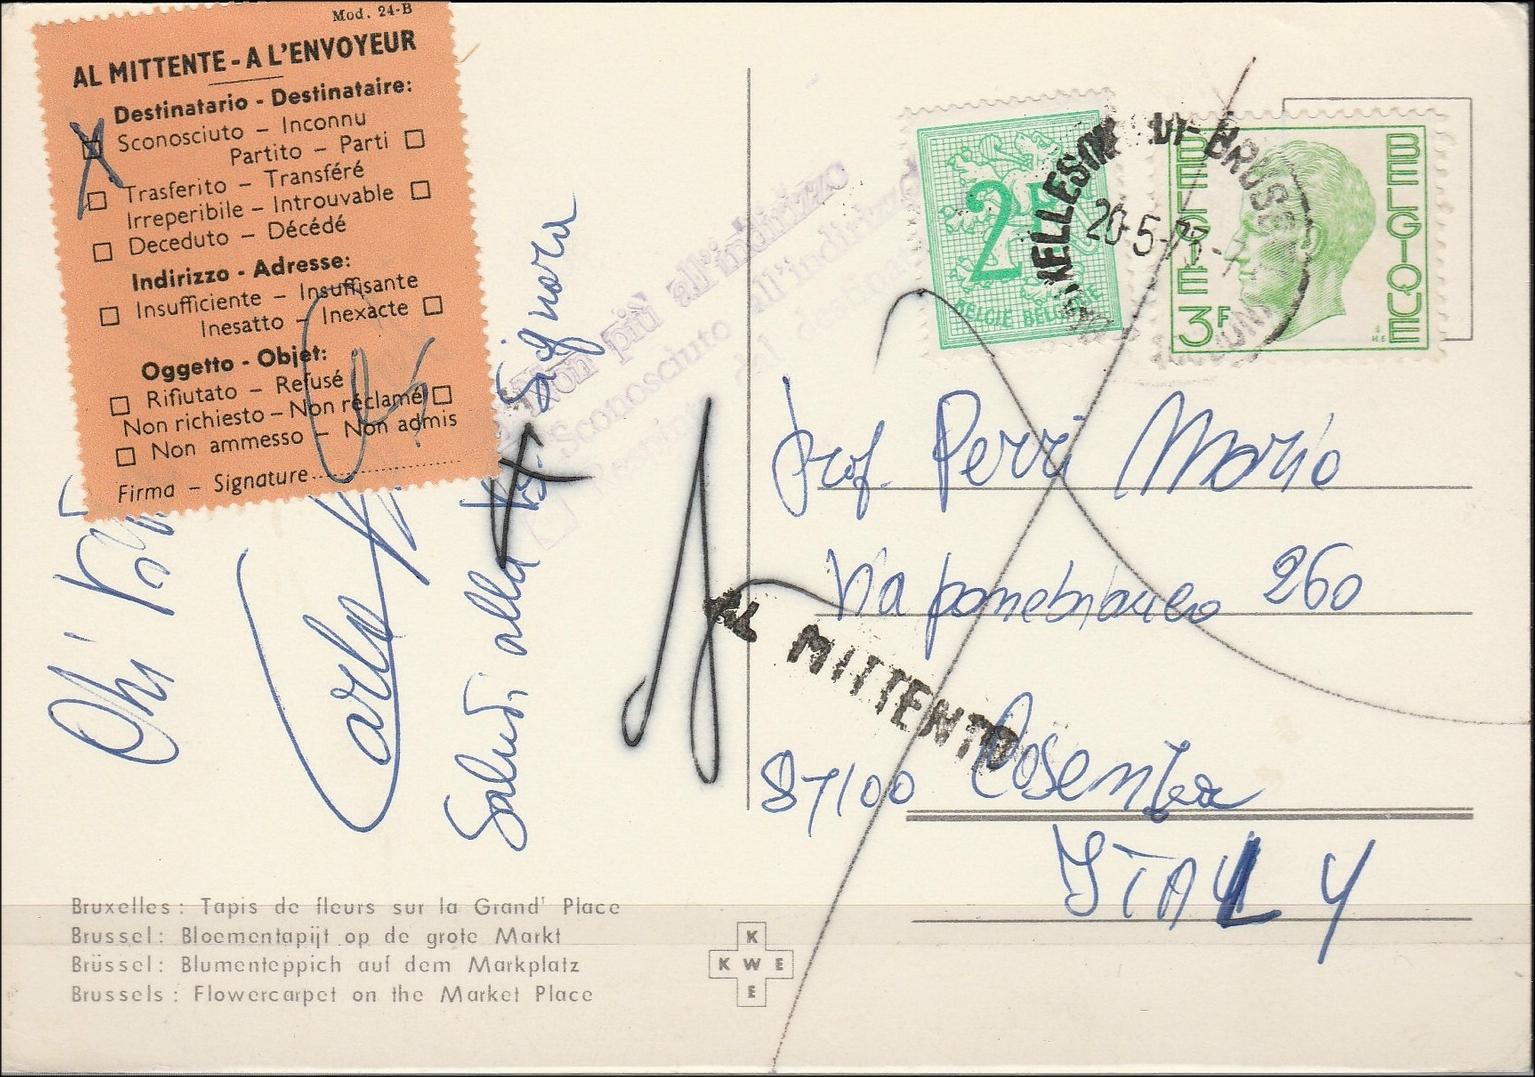 Mod. 24-B
AL MITTENTE - A L'ENVOYEUR
Destinatario - Destinataire:
Sconosciuto - Inconnu
Partito - Parti
Trasferito - Transféré
Irreperibile - Introuvable
Deceduto - Décédé
Indirizzo - Adresse:
Insufficiente - Insuffisante
Inesatto - Inexacte
Oggetto - Objet:
Rifiutato - Refusé
Non richiesto - Non réclamé
Non ammesso - Non admis
Firma - Signature
Carlo
Saludi alla
Signora
Non più all'indirizzo
Sconosciuto all'indirizzo
2F
BELGIË BELGIQUE
20-5-
BELGIE
BELGIQUE
3F
AL MITTENTE
Prof. Perri Mario
Via 260
87100 Cosenza
ITALY
Bruxelles: Tapis de fleurs sur la Grand' Place
Brussel: Bloementapijt op de grote Markt
Brüssel: Blumenteppich auf dem Markplatz
Brussels: Flowercarpet on the Market Place
K
K W E
E